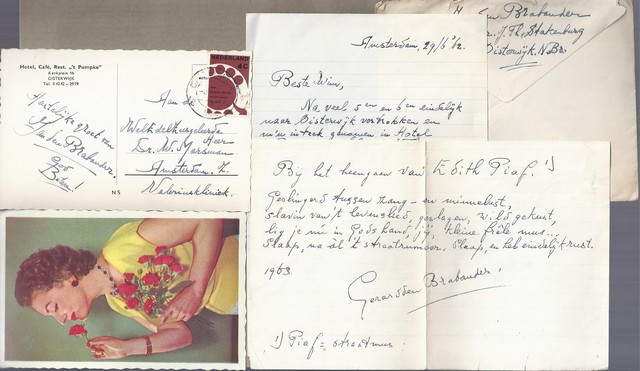 Hotel, Café, Rest. „'t Pompke"
Kerkplein 16
OISTERWIJK
Tel. 0 4242 - 2979
Hartelijke groet van
Den Brabander.
God
N S
NEDERLAND
4c
Aan de
Weledelhooggeleerde
Heer
Dr. W. Marsman
Amsterdam. Z.
Valeriuskliniek.
Amsterdam, 29/6 '62.
Beste Wim,
Na veel 5en en 6en eindelijk
naar Oisterwijk vertrokken en
mijn intrek genomen in Hotel
den Brabander
Stakenburg
Oisterwijk. N.Br.
Bij het heengaan van Edith Piaf. 1)
Geslingerd tussen zang - en minnelust,
slavin van 't levenslied, geslagen, wild gekust,
lig je nu in Gods hand, jij, kleine frêle mus...
Slaap, na al 't straatrumoer. Slaap, en heb eindelijk rust.
1963.
Gerard den Brabander.
1) Piaf = straatmus.